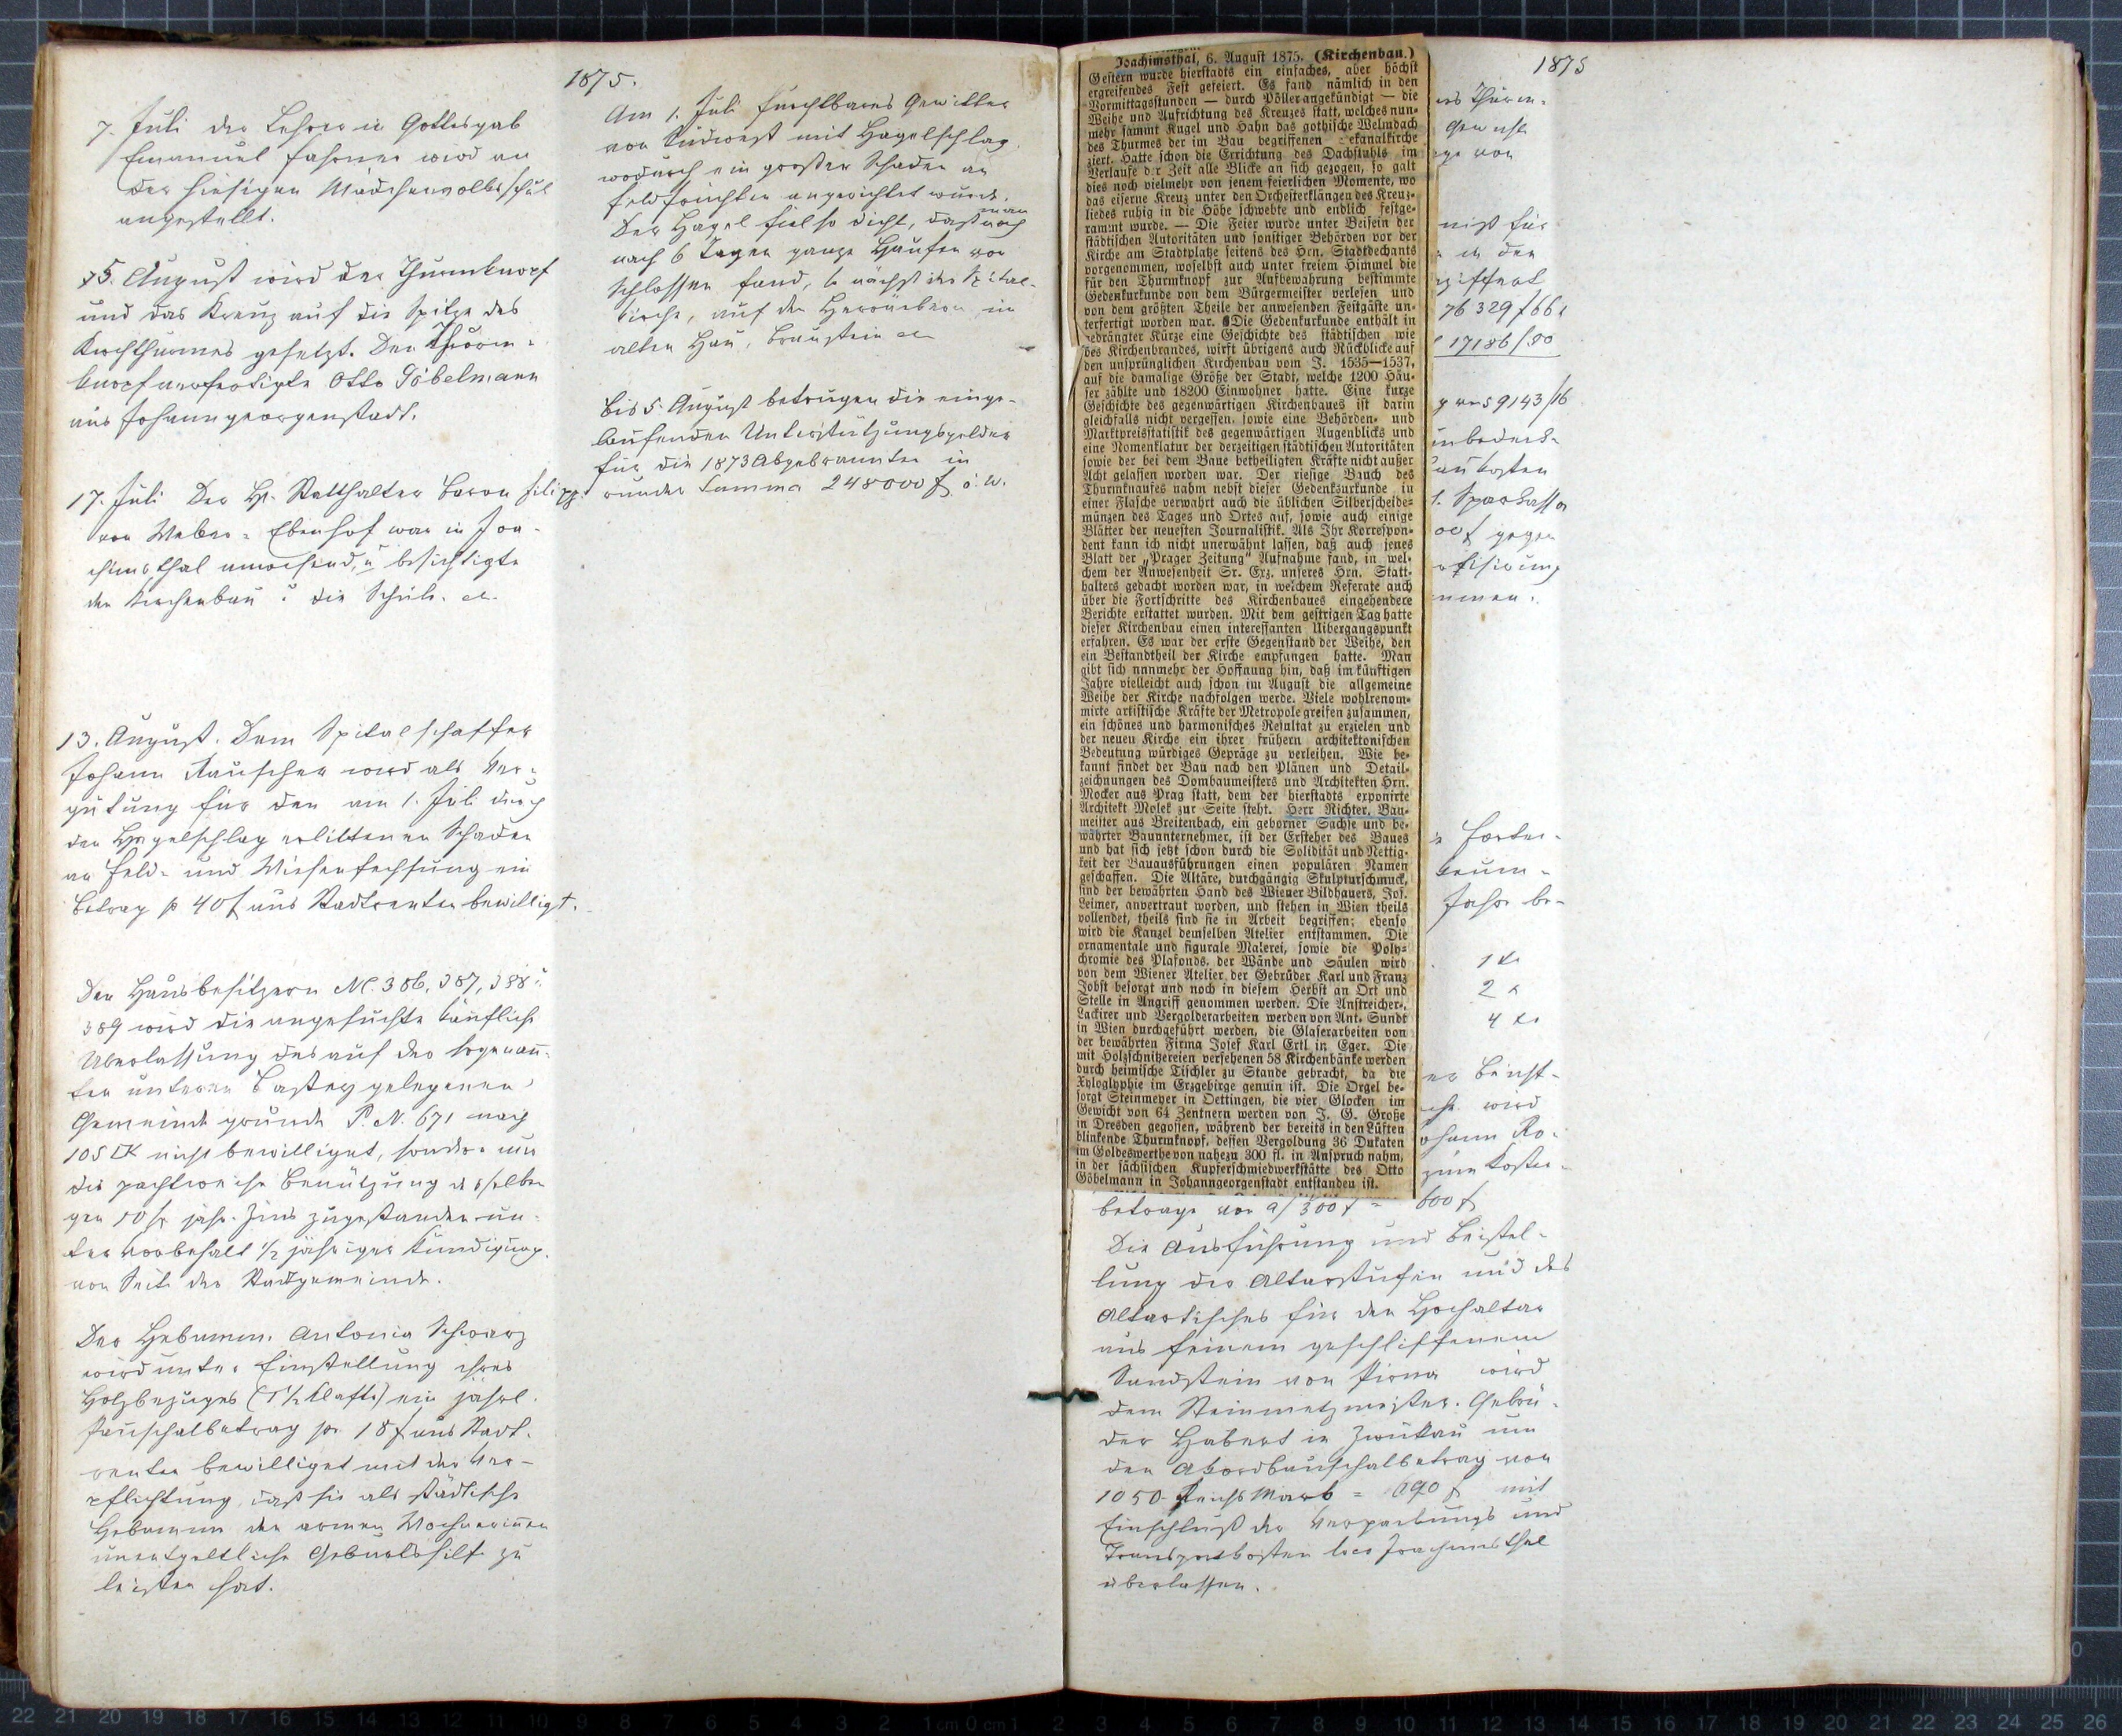 1875.
7. Juli der Lehrer in Gottesgab
Emanuel Fahrner wird an
der hiesigen Mädchenvolksschul
angestellt.
5. August wird der Thurmknopf
und das Kreuz auf die Spitze des
Kirchthurmes gesetzt. Den Thurm-
knopf verfertigte Otto Göbelmann
aus Johanngeorgenstadt.
17. Juli Der H. Statthalter Baron Filipp
von Weber-Ebenhof war in Joa-
chimsthal anwesend, u besichtigte
den Kirchenbau u die Schule. etc.
13. August. Dem Spitalschaffer
Johann Rauscher wird als Ver-
gütung für den am 1. Juli durch
den Hagelschlag erlittenen Schaden
an Feld- und Wiesenfechsung ein
Betrag p 40 f aus Stadtrenten bewilligt.
Den Hausbesitzern Nr. 386, 387, 388 u
389 wird die angesuchte käufliche
Überlassung des auf der sogenan-
ten unteren Bastey gelegenen
Gemeindegrunds P. N. 671 nach
105 □K nicht bewilliget, sondern nur
die pachtweise Benützung desselben
gen 50 kr jähr. Zins zugestanden un-
ter Vorbehalt 1/2 jähriger Kündigung
von Seite der Stadtgemeinde.
Der Hebamme Antonia Schwarz
wird unter Einstellung ihres
Holzbezuges (1 1/2 Klafter) ein jährl.
Pauschalbetrag pr 18 f aus Stadt-
renten bewilliget mit der Ver-
pflichtung, daß sie als städtische
Hebamme den armen Wöchnerinen
unentgeltliche Geburtshilfe zu
leisten hat.
Am 1. Juli furchtbares Gewitter
von Südwest mit Hagelschlag
wodurch ein grosser Schaden an
Feldfrüchten angerichtet wurde.
Der Hagel fiel so dicht, daß man noch
nach 6 Tagen ganze Haufen von
Schlossen fand, so nächst der Spital-
kirche, auf den Herrnäckern, in
alten Hau, Braustein etc
Bis 5. August betrugen die einge-
laufenden Unterstützungsgelder
für die 1873 Abgebrannten in
runder Summa 248000 f ö. W.
1875
Joachimsthal, 6. August 1875. (Kirchenbau.)
Gestern wurde hierstadts ein einfaches, aber höchst
ergreifendes Fest gefeiert. Es fand nämlich in den
Vormittagsstunden — durch Pöller angekündigt — die
Weihe und Aufrichtung des Kreuzes statt, welches nun-
mehr sammt Kugel und Hahn das gothische Welmdach
des Thurmes der im Bau begriffenen ekanalkirche
ziert. Hatte schon die Errichtung des Dachstuhls im
Verlaufe der Zeit alle Blicke an sich gezogen, so galt
dies noch vielmehr von jenem feierlichen Momente, wo
das eiserne Kreuz unter den Orchesterklängen des Kreuz-
liedes ruhig in die Höhe schwebte und endlich festge-
rammt wurde. — Die Feier wurde unter Beisein der
städtischen Autoritäten und sonstiger Behörden vor der
Kirche am Stadtplatze seitens des Hrn. Stadtdechants
vorgenommen, woselbst auch unter freiem Himmel die
für den Thurmknopf zur Aufbewahrung bestimmte
Gedenkurkunde von dem Bürgermeister verlesen und
von dem größten Theile der anwesenden Festgäste un-
terfertigt worden war. Die Gedenkurkunde enthält in
gedrängter Kürze eine Geschichte des städtischen wie
des Kirchenbrandes, wirft übrigens auch Rückblicke auf
den ursprünglichen Kirchenbau vom J. 1535—1537,
auf die damalige Größe der Stadt, welche 1200 Häu-
ser zählte und 18200 Einwohner hatte. Eine kurze
Geschichte des gegenwärtigen Kirchenbaues ist darin
gleichfalls nicht vergessen, sowie eine Behörden- und
Marktpreisstatistik des gegenwärtigen Augenblicks und
eine Nomenklatur der derzeitigen städtischen Autoritäten
sowie der bei dem Baue betheiligten Kräfte nicht außer
Acht gelassen worden war. Der riesige Bauch des
Thurmknaufes nahm nebst dieser Gedenkurkunde in
einer Flasche verwahrt auch die üblichen Silberscheide-
münzen des Tages und Ortes auf, sowie auch einige
Blätter der neuesten Journalistik. Als Ihr Korrespon-
dent kann ich nicht unerwähnt lassen, daß auch jenes
Blatt der „Prager Zeitung" Aufnahme fand, in wel-
chem der Anwesenheit Sr. Exz. unseres Hrn. Statt-
halters gedacht worden war, in welchem Referate auch
über die Fortschritte des Kirchenbaues eingehendere
Berichte erstattet wurden. Mit dem gestrigen Tag hatte
dieser Kirchenbau einen interessanten Uibergangspunkt
erfahren. Es war der erste Gegenstand der Weihe, den
ein Bestandtheil der Kirche empfangen hatte. Man
gibt sich nnnmehr der Hoffnung hin, daß im künftigen
Jahre vielleicht auch schon im August die allgemeine
Weihe der Kirche nachfolgen werde. Viele wohlrenom-
mirte artistische Kräfte der Metropole greifen zusammen,
ein schönes und harmonisches Resultat zu erzielen und
der neuen Kirche ein ihrer frühern architektonischen
Bedeutung würdiges Gepräge zu verleihen. Wie be-
kannt findet der Bau nach den Plänen und Detail-
zeichnungen des Dombaumeisters und Architekten Hrn.
Mocker aus Prag statt, dem der hierstadts exponirte
Architekt Molek zur Seite steht. Herr Richter, Bau-
meister aus Breitenbach, ein geborner Sachse und be-
währter Bauunternehmer, ist der Ersteher des Baues
und hat sich jetzt schon durch die Solidität und Nettig-
keit der Bauausführungen einen populären Namen
geschaffen. Die Altäre, durchgängig Skulpturschmuck,
sind der bewährten Hand des Wiener Bildhauers, Jos.
Leimer, anvertraut worden, und stehen in Wien theils
vollendet, theils sind sie in Arbeit begriffen; ebenso
wird die Kanzel demselben Atelier entstammen. Die
ornamentale und figurale Malerei, sowie die Poly-
chromie des Plafonds, der Wände und Säulen wird
von dem Wiener Atelier der Gebrüder Karl und Franz
Jobst besorgt und noch in diesem Herbst an Ort und
Stelle in Angriff genommen werden. Die Anstreicher-,
Lackirer und Vergolderarbeiten werden von Ant. Sundt
in Wien durchgeführt werden, die Glaserarbeiten von
der bewährten Firma Josef Karl Ertl in Eger. Die
mit Holzschnitzereien versehenen 58 Kirchenbänke werden
durch heimische Tischler zu Stande gebracht, da die
Xyloglyphie im Erzgebirge genuin ist. Die Orgel be-
sorgt Steinmeyer in Oettingen, die vier Glocken im
Gewicht von 64 Zentnern werden von J. G. Große
in Dresden gegossen, während der bereits in den Lüften
blinkende Thurmknopf, dessen Vergoldung 36 Dukaten
im Goldeswerthe von nahezu 300 fl. in Anspruch nahm,
in der sächsischen Kupferschmiedwerkstätte des Otto
Göbelmann in Johanngeorgenstadt entstanden ist.
es Thurm-
ge von
niß für
in den
ziffert
76 329 f 66 x
17186 f 50
9143 f 16
unbedeck-
aukosten
1. Sparkassa
00 f gegen
Jahr be-
1 kr
2 x
4 kr
wird
ohann Ro-
zum Kosten-
betrage von a/ 300 f = 600 f
Die Ausführung und Beistel-
lung der Altarstufen und des
Altartisches für den Hochaltar
aus feinem geschliffenem
Sandstein von Pirna wird
dem Steinmetzmeister Gebrü-
der Habert in Zwickau um
den Akordbauschalbetrag von
1050 Reichs Mark = 690 f mit
Einschluß der Verpackungs und
Transportkosten loco Joachimsthal
überlassen.